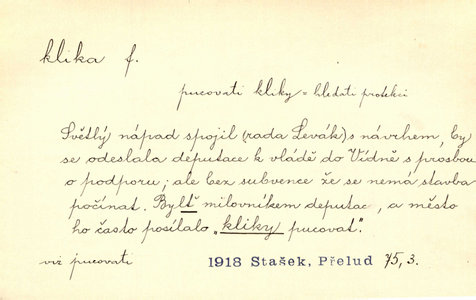 klika f.
pucovati kliky = hledati protekci
Světlý nápad spojil (rada Levák) s návrhem, by
se odeslala deputace k vládě do Vídně s prosbou
o podporu; ale bez subvence že se nemá stavba
počínat. Bylť milovníkem deputac, a město
ho často posílalo „kliky pucovat".
viz pucovati
1918 Stašek, Přelud 75, 3.